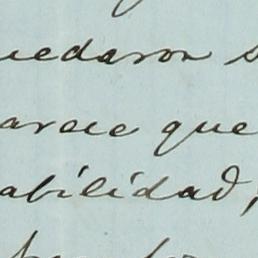 uedaron s
arece que
abilidad,